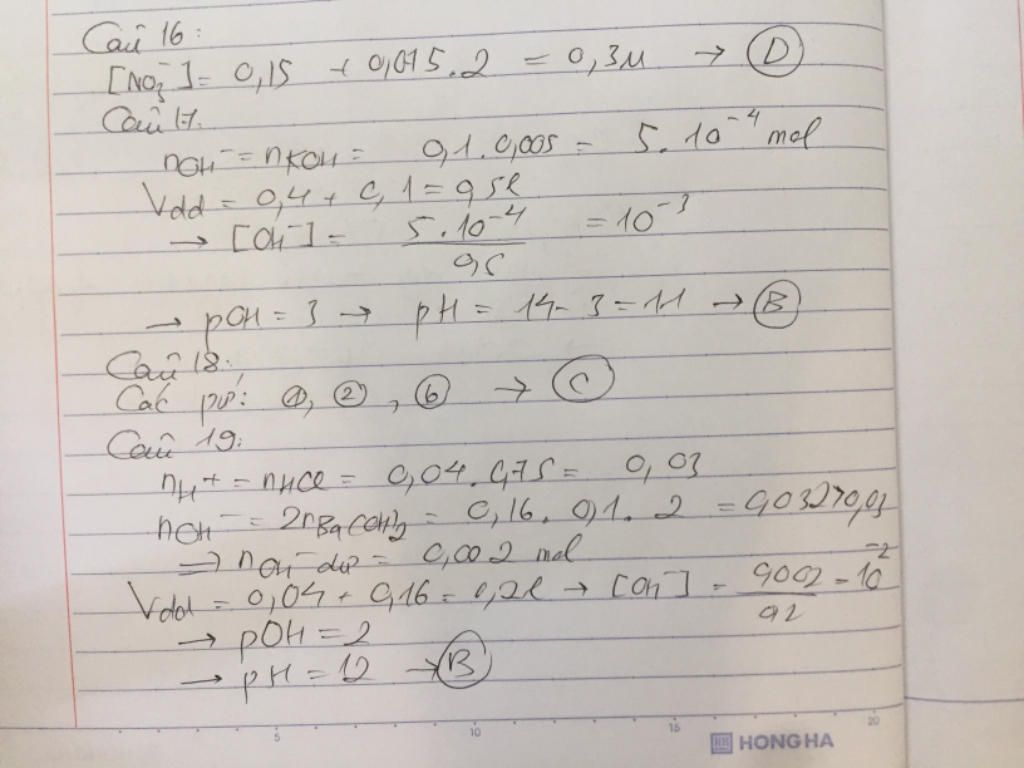 Câu 16:
[NO3-] = 0,15 + 0,075.2 = 0,3M → (D)
Câu 17.
nOH- = nKOH = 0,1.0,005 = 5.10^-4 mol
Vdd = 0,4 + 0,1 = 0,5l
→ [OH-] = 5.10^-4 / 0,5 = 10^-3
→ pOH = 3 → pH = 14 - 3 = 11 → (B)
Câu 18:
Các pư: ①, ②, ⑥ → (C)
Câu 19:
nH+ = nHCl = 0,04.0,75 = 0,03
nOH- = 2nBa(OH)2 = 0,16.0,1.2 = 0,032>0,03
⇒ nOH- dư = 0,002 mol
Vdd = 0,04 + 0,16 = 0,2l → [OH-] = 0,002 / 0,2 = 10^-2
→ pOH = 2
→ pH = 12 → (B)
5 10 15 20
HH HONG HA